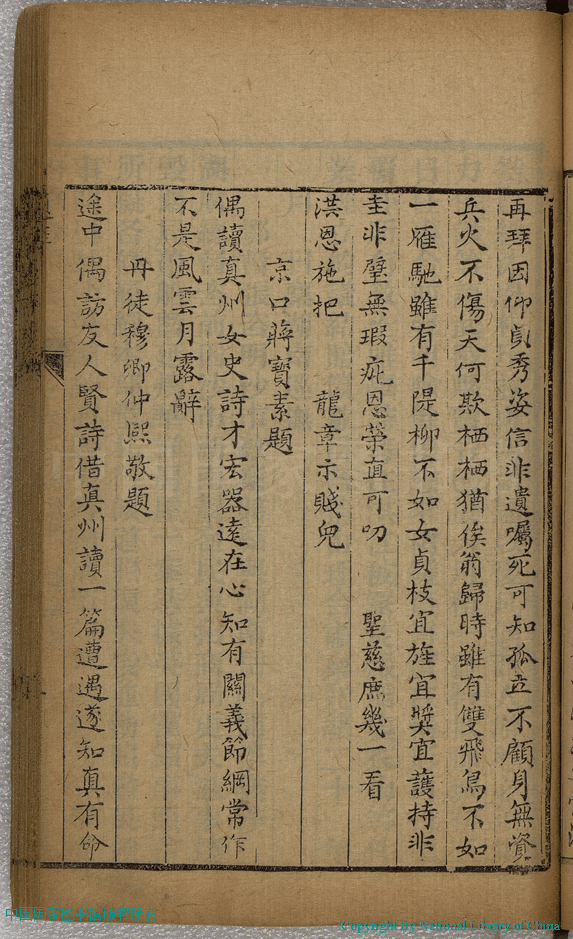 再拜因仰貞秀姿信非遺囑死可知孤立不顧身無資
兵火不傷天何欺栖栖猶俟翁歸時雖有雙飛鳥不如
一雁馳雖有千隄柳不如女貞枝宜旌宜獎宜護持非
圭非璧無瑕疵恩榮直可叨　聖慈庶幾一看
洪恩施把　龍章示賤兒
京口蔣寶素題
偶讀真州女史詩才宏器遠在心知有關義節綱常作
不是風雲月露辭
丹徒穆卿仲熙敬題
途中偶訪友人賢詩借真州讀一篇遭遇遂知真有命
Copyright By National Library of China